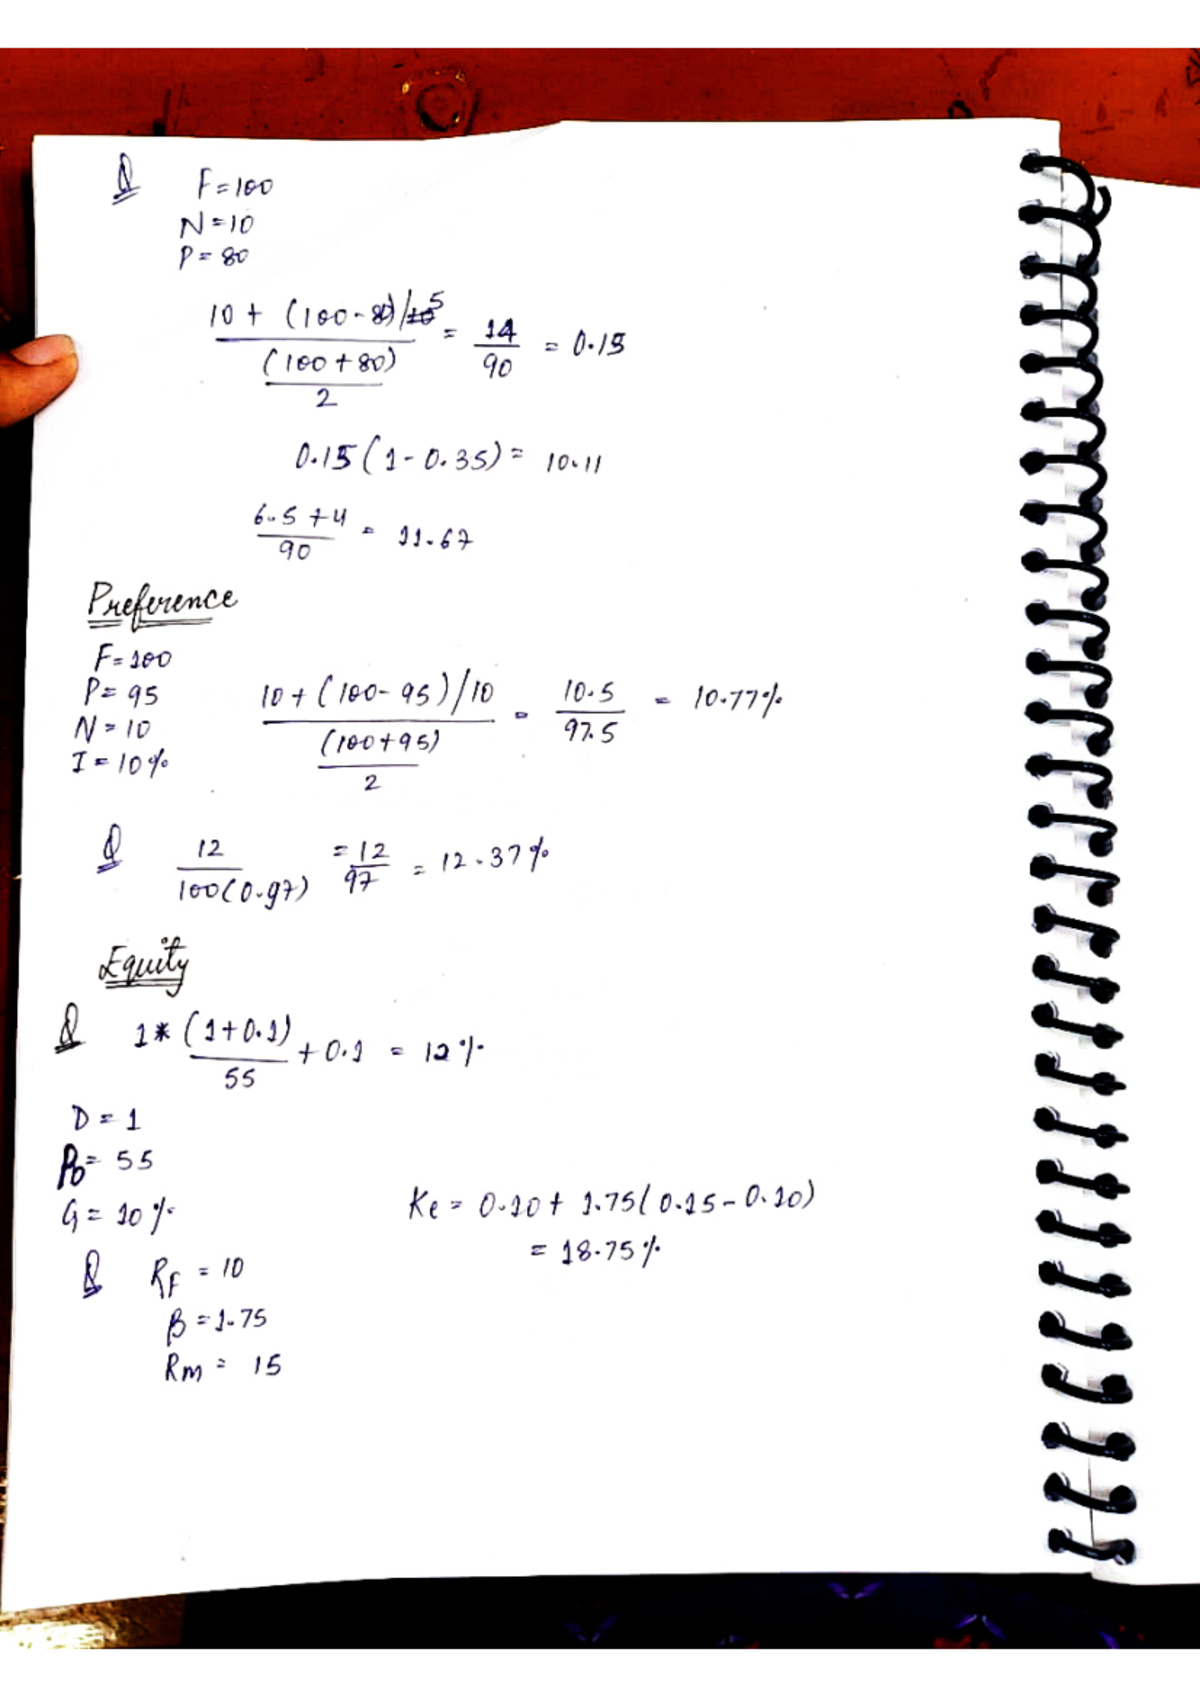 Q F = 100
N = 10
P = 80
10 + (100 - 80)/10 5
(100 + 80)
2
= 14
90
= 0.15
0.15 (1 - 0.35) = 10.11
6.5 + 4
90
= 11.67
Preference
F = 100
P = 95
N = 10
I = 10%
10 + (100 - 95)/10
(100 + 95)
2
= 10.5
97.5
= 10.77%
Q 12
100(0.97)
= 12
97
= 12.37%
Equity
Q 1* (1 + 0.1)
55
+ 0.1 = 12%
D = 1
P0 = 55
G = 10%
Ke = 0.10 + 1.75(0.15 - 0.10)
= 18.75%
Q RF = 10
β = 1.75
Rm = 15